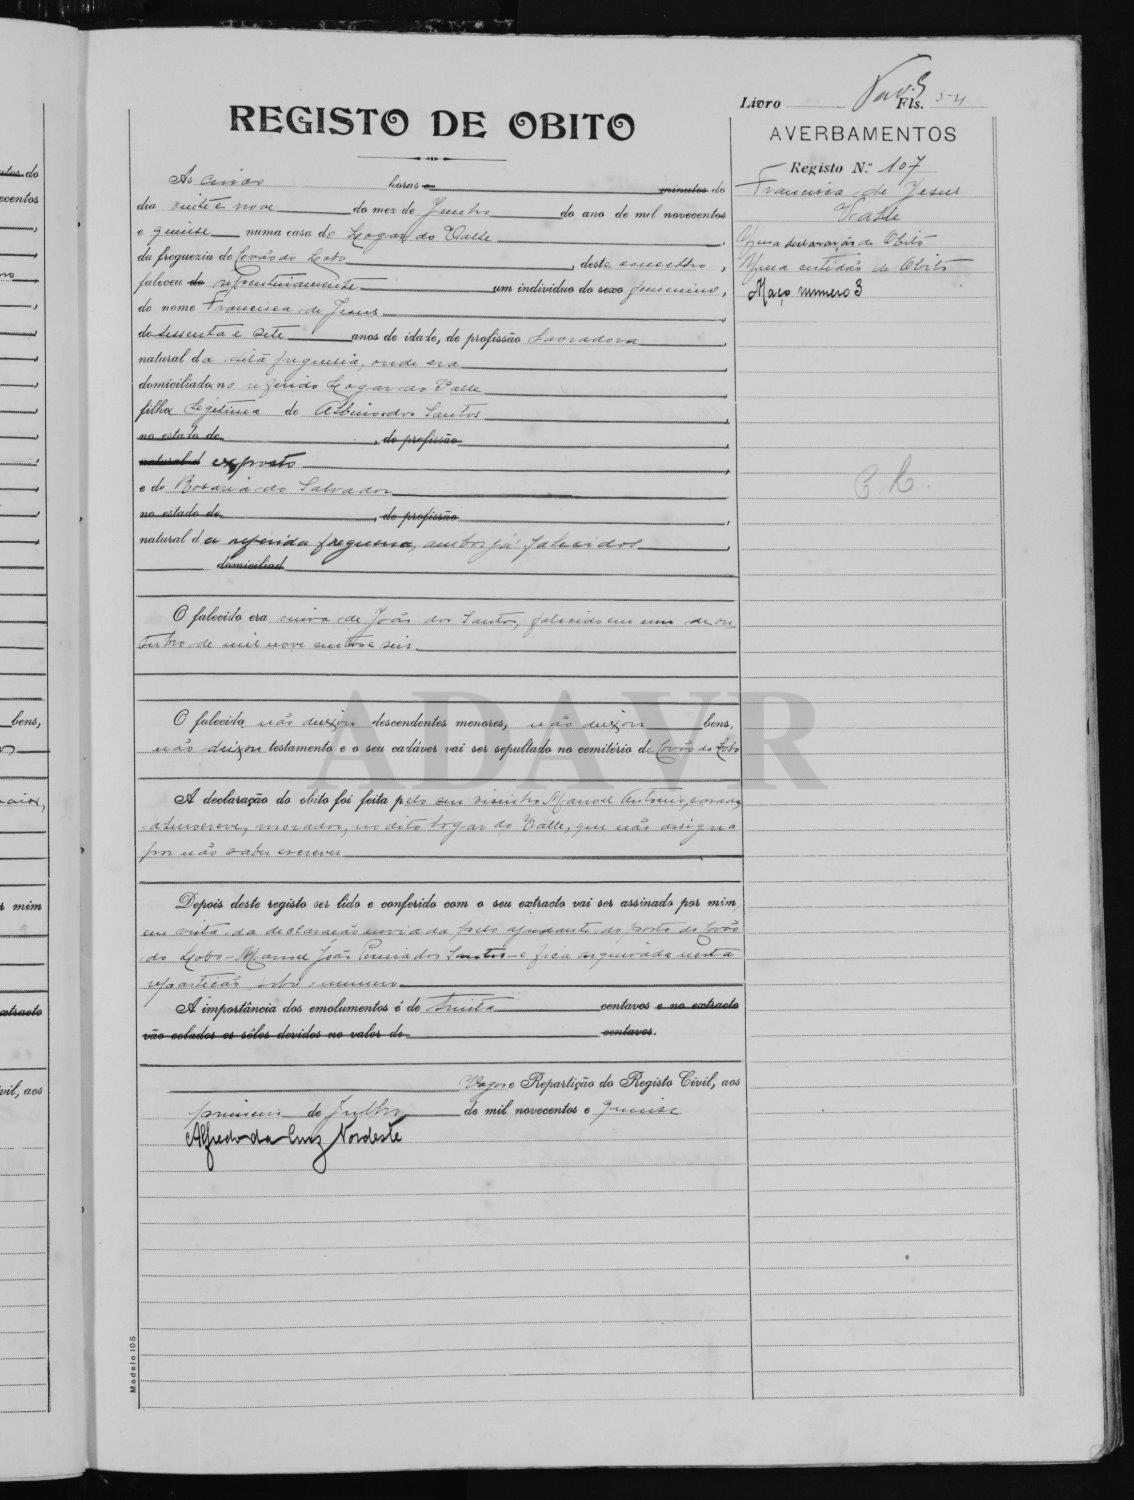 Livro Fls. 54
REGISTO DE OBITO
AVERBAMENTOS
Registo N.º 107
Francisca de Jesus
Valle
Uma declaração de Obito
Uma certidão de Obito
Maço numero 3
C. R.
As cinco horas e minutos do
dia vinte e nove do mez de Junho do ano de mil novecentos
e quinse numa casa do Logar do Valle,
da freguezia de Covão do Lobo, deste concelho,
faleceu de repentinamente um individuo do sexo femenino,
de nome Francisca de Jesus,
de sessenta e sete anos de idade, de profissão Lavradora,
natural da dita freguesia, onde era,
domiciliada no referido Logar do Valle,
filha legitima de Albino dos Santos,
no estado de, de profissão,
natural d exposto,
e de Rosaria do Salvador,
no estado de, de profissão,
natural da referida freguesia, ambos já falecidos,
domiciliad
O falecido era viuva de João dos Santos, falecido em um de ou
tubro de mil nove centos e seis.
O falecida não deixou descendentes menores, não deixou bens,
não deixou testamento e o seu cadáver vai ser sepultado no cemitério de Covão do Lobo
A declaração do obito foi feita pelo seu visinho Manoel Antonio, casado,
morador, no dito logar do Valle, que não assigna
por não saber escrever
Depois deste registo ser lido e conferido com o seu extracto vai ser assinado por mim,
em vista da declaração enviada pelo ajudante do posto de Covão
do Lobo - Manoel João dos Santos - e fica arquivada nesta
repartição sob o numero
A importância dos emolumentos é de trinta centavos e no extracto
vão colados os sêlos devidos no valor de centavos.
Vagos e Repartição do Registo Civil, aos
primeiro de Julho de mil novecentos e quinse
Alfredo da Cruz Nordeste
Modelo 105
ADAVR
utos do
ecentos
bens,
r mim
xtracto
vil, aos